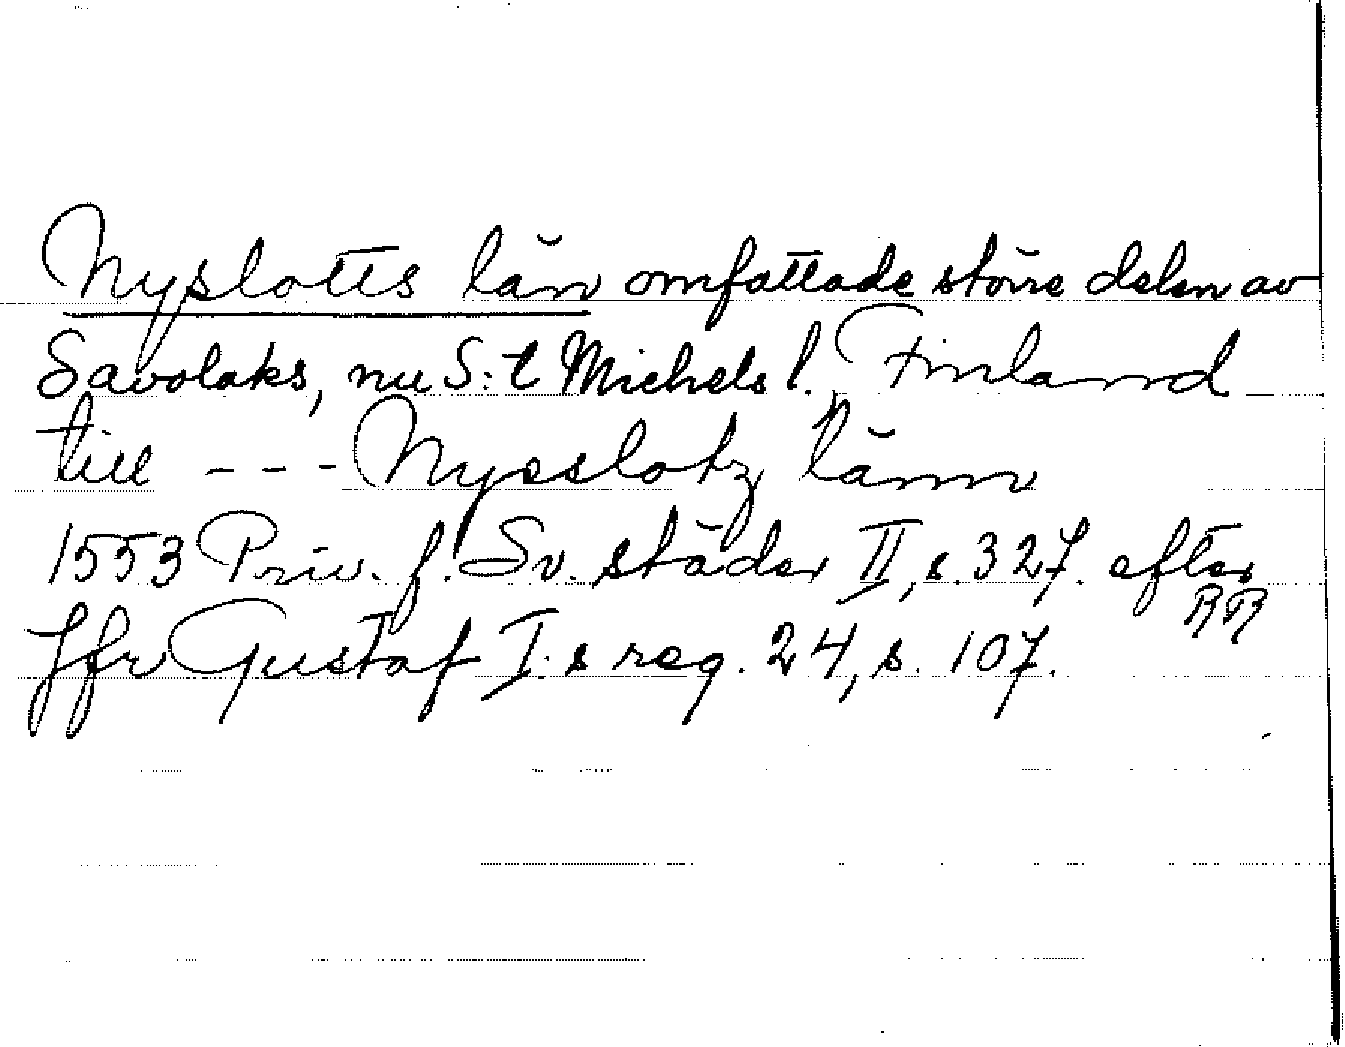 Nyslotts län omfattade större delen av
Savolaks, nu S:t Michels l., Finland
till --- Nysslotz länn
1553 Priv. f. Sv. städer II, s. 327. efter
RR
Jfr Gustaf I:s reg. 24, s. 107.